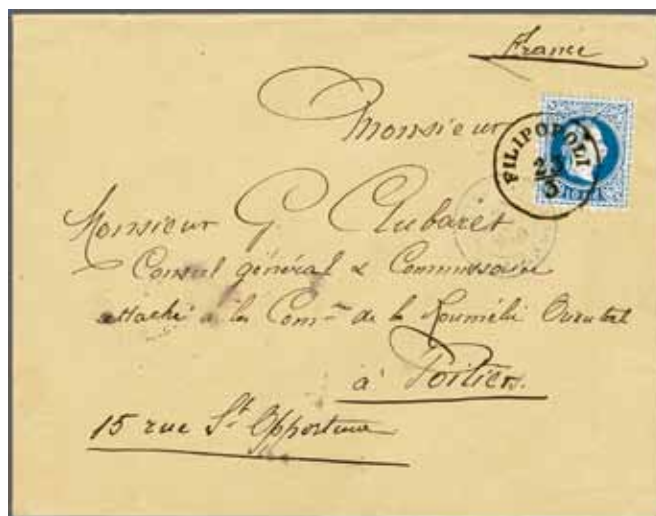 France
Monsieur
FILIPOPOLI
23
3
Monsieur G Aubaret
Consul général & Commissaire
attaché à la Com.on de la Roumélie Orientale
à Poitiers.
15 rue Ste Opportune